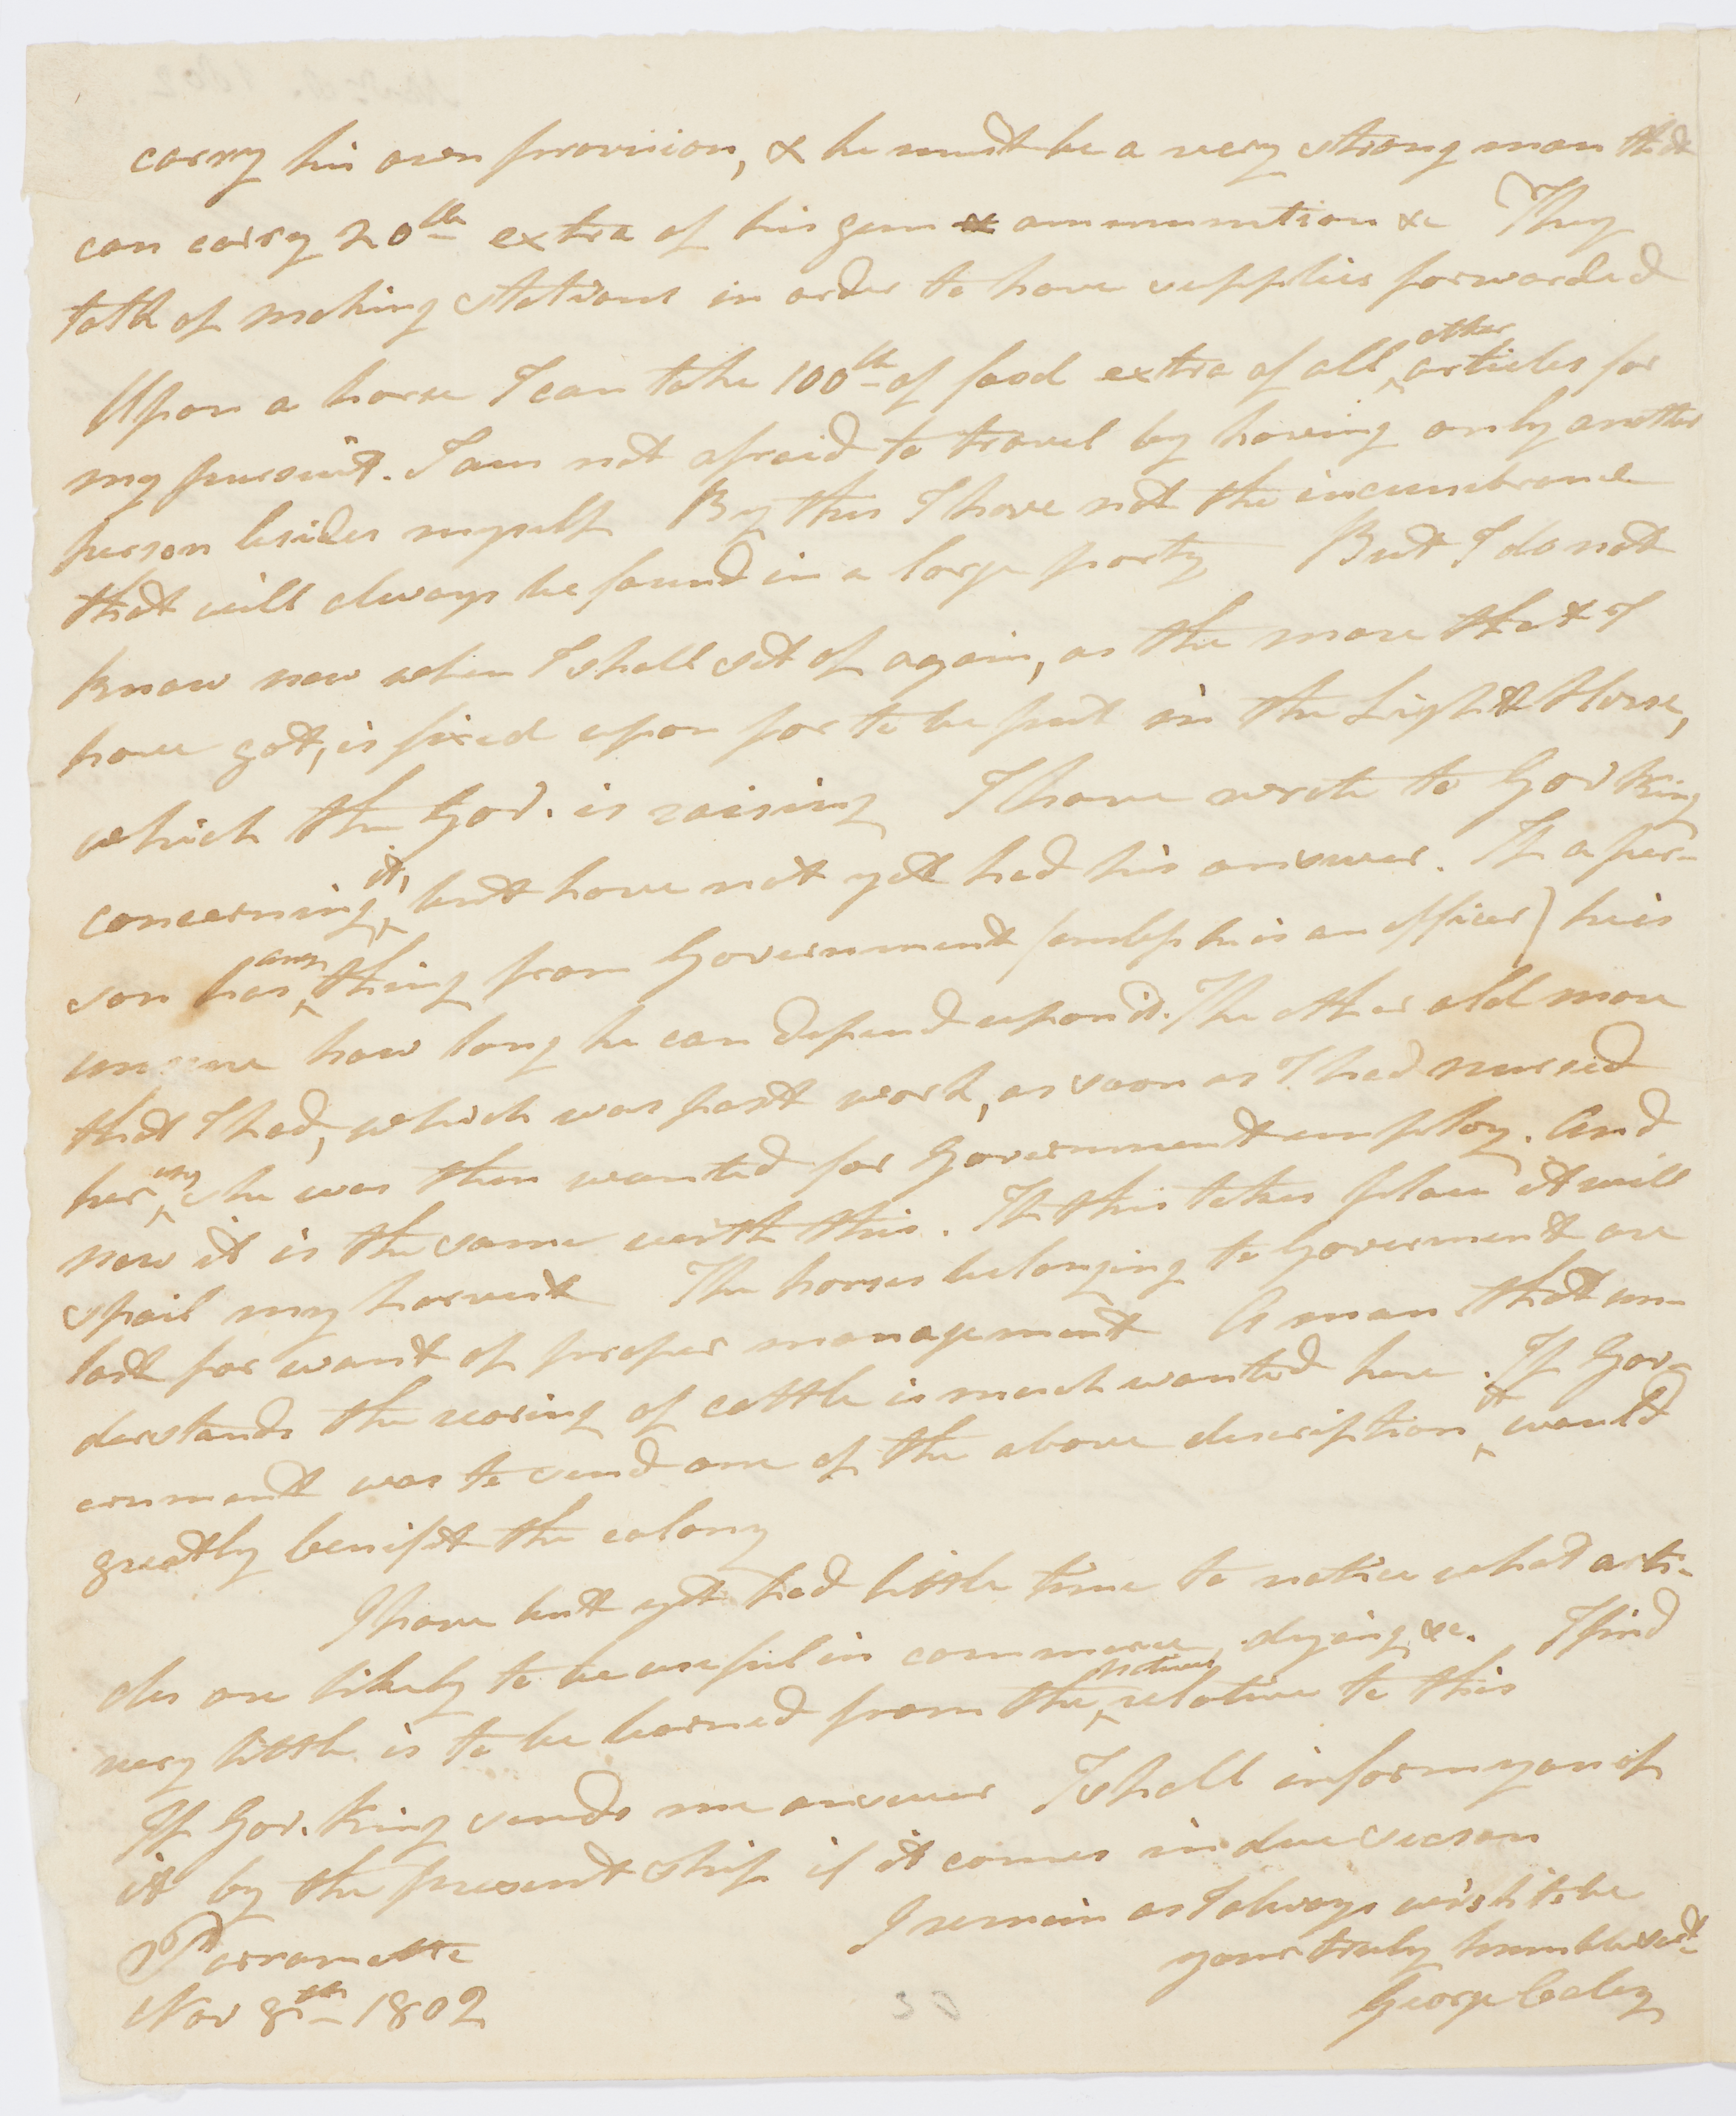 carry his own provision, & he must be a very strong man that
can carry 20lb extra of his gun & ammunition &c They
talk of making stations in order to have supplies forwarded
Upon a horse I can take 100lb of food extra of all other articles for
my pursuit. I am not afraid to travel by having only another
person besides myself By this I have not the incumbrance
that will always be found in a large party But I do not
know now when I shall set of again, as the mare that I
have got, is fixed upon for to be put in the Light Horse,
which the Gov. is raising I have wrote to Gov King
concerning it, but have not yet had his answer. If a per-
son has any thing from Government (unless he is an officer) he is
unsure how long he can depend upon it. The other old mare
that I had, which was past work, as soon as I had nursed
her up, she was then wanted for Government employ. And
now it is the same with this. If this takes place it will
spoil my harvest The horses belonging to Goverment are
lost for want of proper management A man that un-
derstands the rearing of cattle is much wanted here. If Gov-
ernment was to send one of the above description it would
greatly benifit the colony
I have but yet had little time to notice what arti-
cles are likely to be useful in commerce, dying &c. I find
very little is to be learned from the natives relative to this
If Gov. King sends me answer I shall inform you of
it by the present ship if it comes in due season
I remain as I always wish to be
your truly humble servt
Parramatta
Nov 8th 1802
George Caley